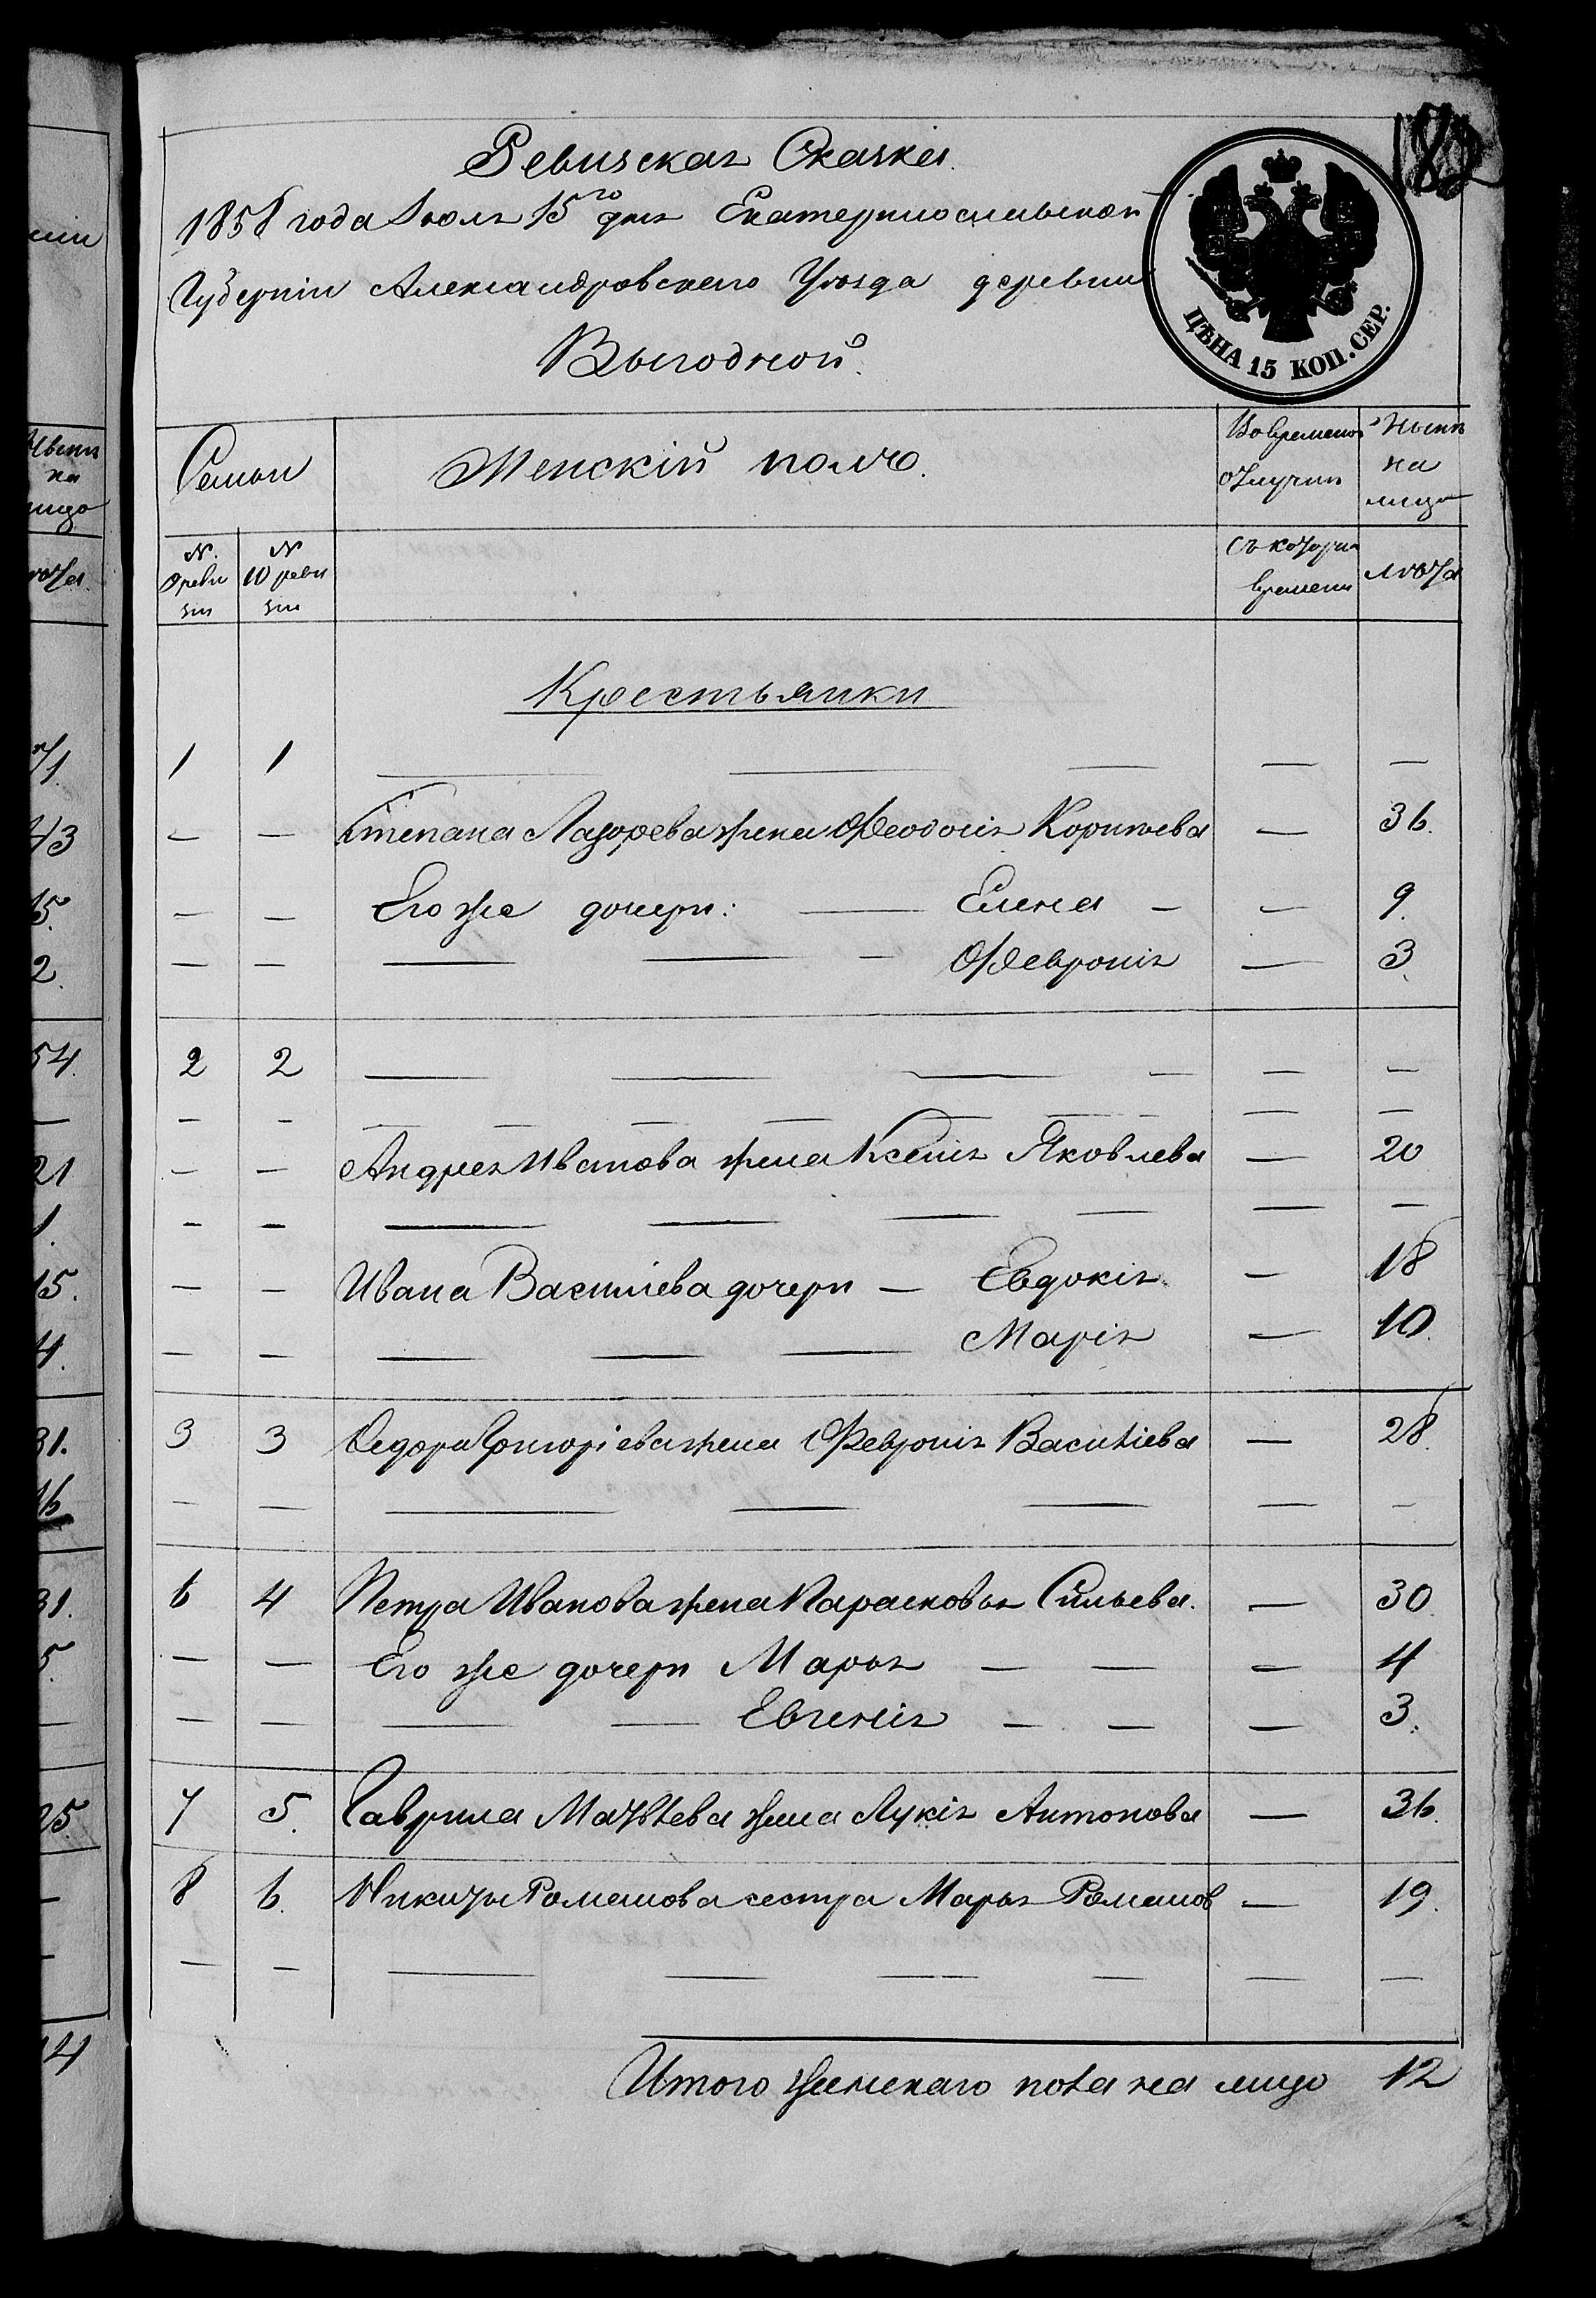 182
Ревизская Сказка.
1858 года Июля 15го дня Екатеринославской
Губерніи Александровскаго Уѣзда деревни
Выгодной.
ЦѢНА 15 КОП. СЕР.
Семьи Женскій полъ. Во временной отлучкѣ Нынѣ на лицо
N. 9 ревизіи N 10 ревизіи Съ котораго времени лѣта
Крестьянки
1 1 — — — — —
— — Степана Лазорева жена Феодосія — 36.
— — Его же дочери: — Елена — — 9.
— — — — — Феврониія — 3.
2 2 — — — — — —
— — — — — — — — — —
— — Андрея Иванова жена Ксенія Яковлева — 20
— — — — — — — —
— — Ивана Василіева дочери — Евдокія. — 18
— — — — — Марія — 10.
3 3 Федора Григоріева жена Февронія Василіева — 28.
— — — — — — —
6 4 Петра Иванова жена Парасковья — 30.
— — Его же дочери Марья — — — 4
— — — — Евгенія — — — 3.
7 5. Гаврила Матвѣева жена Лукія Антонова — 36.
8 6. Никиты Романова сестра Марья Романов — 19.
— — — — — — — —
Итого женскаго пола на лицо 12